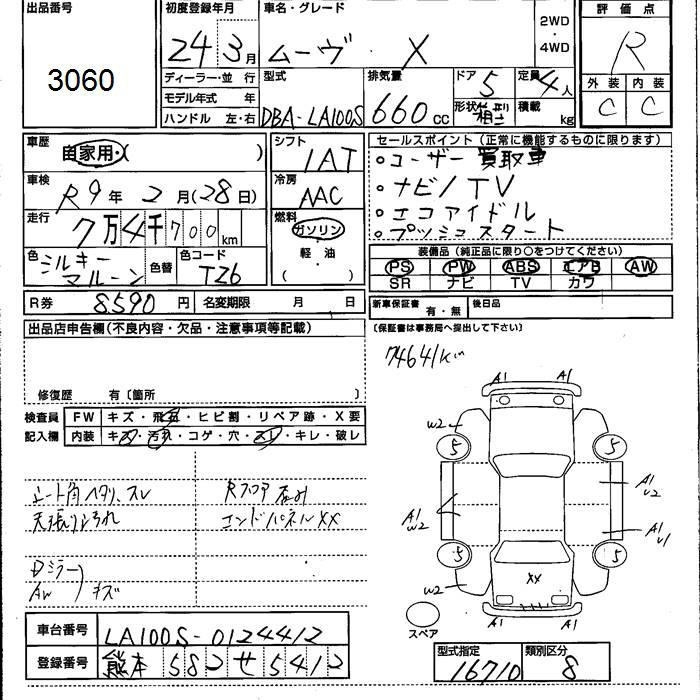 出品番号
3060
初度登録年月
24 3月
車名・グレード
ムーヴ X
2WD
・
4WD
評価点
R
外装 内装
C C
ディーラー・並行
モデル年式 年
ハンドル 左・右
型式
DBA-LA100S
排気量
660 CC
ドア 5
形状 箱型
定員 4人
積載 kg
車歴
自家用・( )
車検
R9年 2月(28日)
走行
7万4千700km
色
シルキー
マルーン
色替
色コード
T26
R券 8590円 名変期限 月 日
シフト
IAT
冷房
AAC
燃料
ガソリン
・
軽・油
( )
セールスポイント(正常に機能するものに限ります)
○ユーザー買取車
○ナビ/TV
○エコアイドル
○プッシュスタート
装備品(純正品に限り○をつけてください)
PS PW ABS エアB AW
SR ナビ TV カワ
新車保証書 有・無 後日品
(保証書は事務局へ提出して下さい)
出品店申告欄(不良内容・欠品・注意事項等記載)
修復歴 有〔箇所 〕
検査員 FW キズ・飛石・ヒビ割・リペア跡・X要
記入欄 内装 キズ・汚れ・コゲ・穴・スレ・キレ・破レ
シート角ヘタリ、スレ
天張り汚れ
Dミラー
AW キズ
Rフロア歪み
エンドパネルXX
74641km
A1 A1
W2
5 5
A1
U2
A1
W2
A1
U1
5 5
W2
XX
A1 A1
スペア
車台番号 LA100S-0124412
登録番号 熊本 582 せ 5412
型式指定 類別区分
16710 8